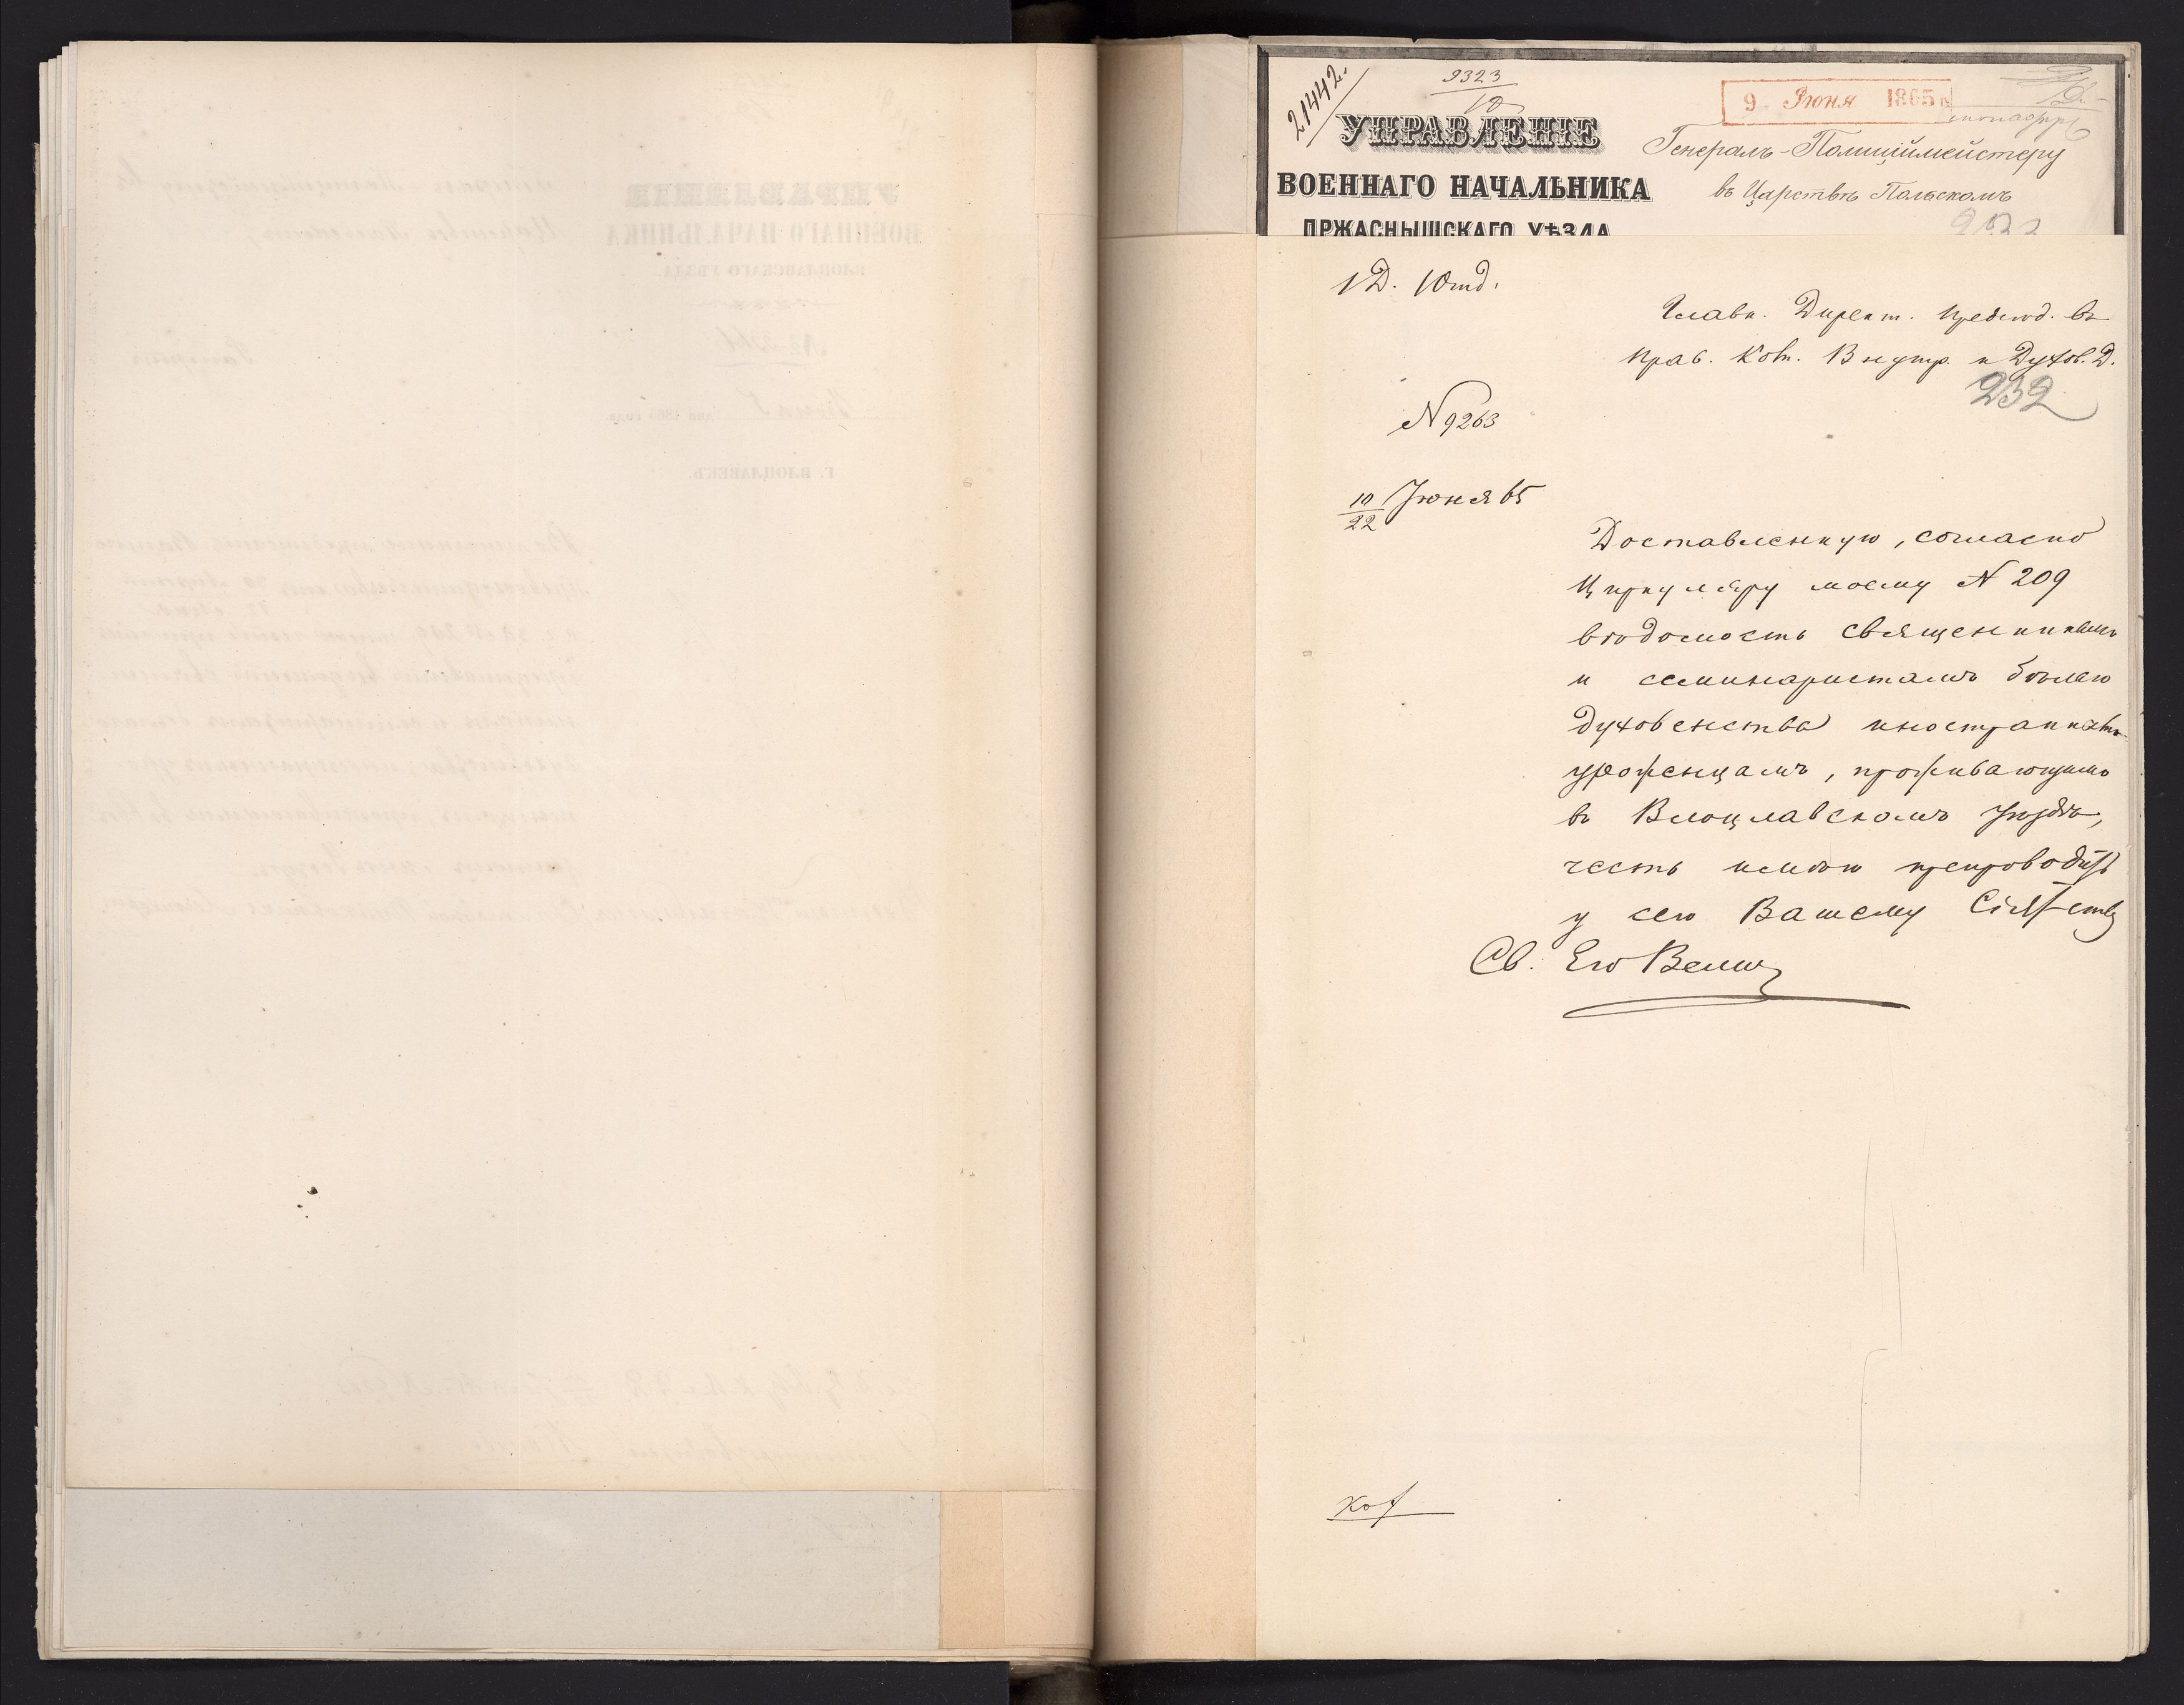 21442.
9323
10
9 Июня 1865
УПРАВЛЕНІЕ
ВОЕННАГО НАЧАЛЬНИКА
ПРЖАСНЫШСКАГО УѢЗДА
Генералъ-Полиціймейстеру
въ Царствѣ Польскомъ
1 Д. 1 Отд.
Главн. Директ. Предсѣд. въ
Прав. Ком. Внутр. и Духов. Д.
232
№ 9263
10/22 Іюня 65
Доставленную, согласно
Циркуляру моему № 209
вѣдомость священникамъ
и семинаристамъ бѣлаго
духовенства иностраннымъ
уроженцамъ, проживающимъ
въ Влоцлавскомъ Уѣздѣ,
честь имѣю препроводить
у сего Вашему Сіят-ству
Св. Его Велич